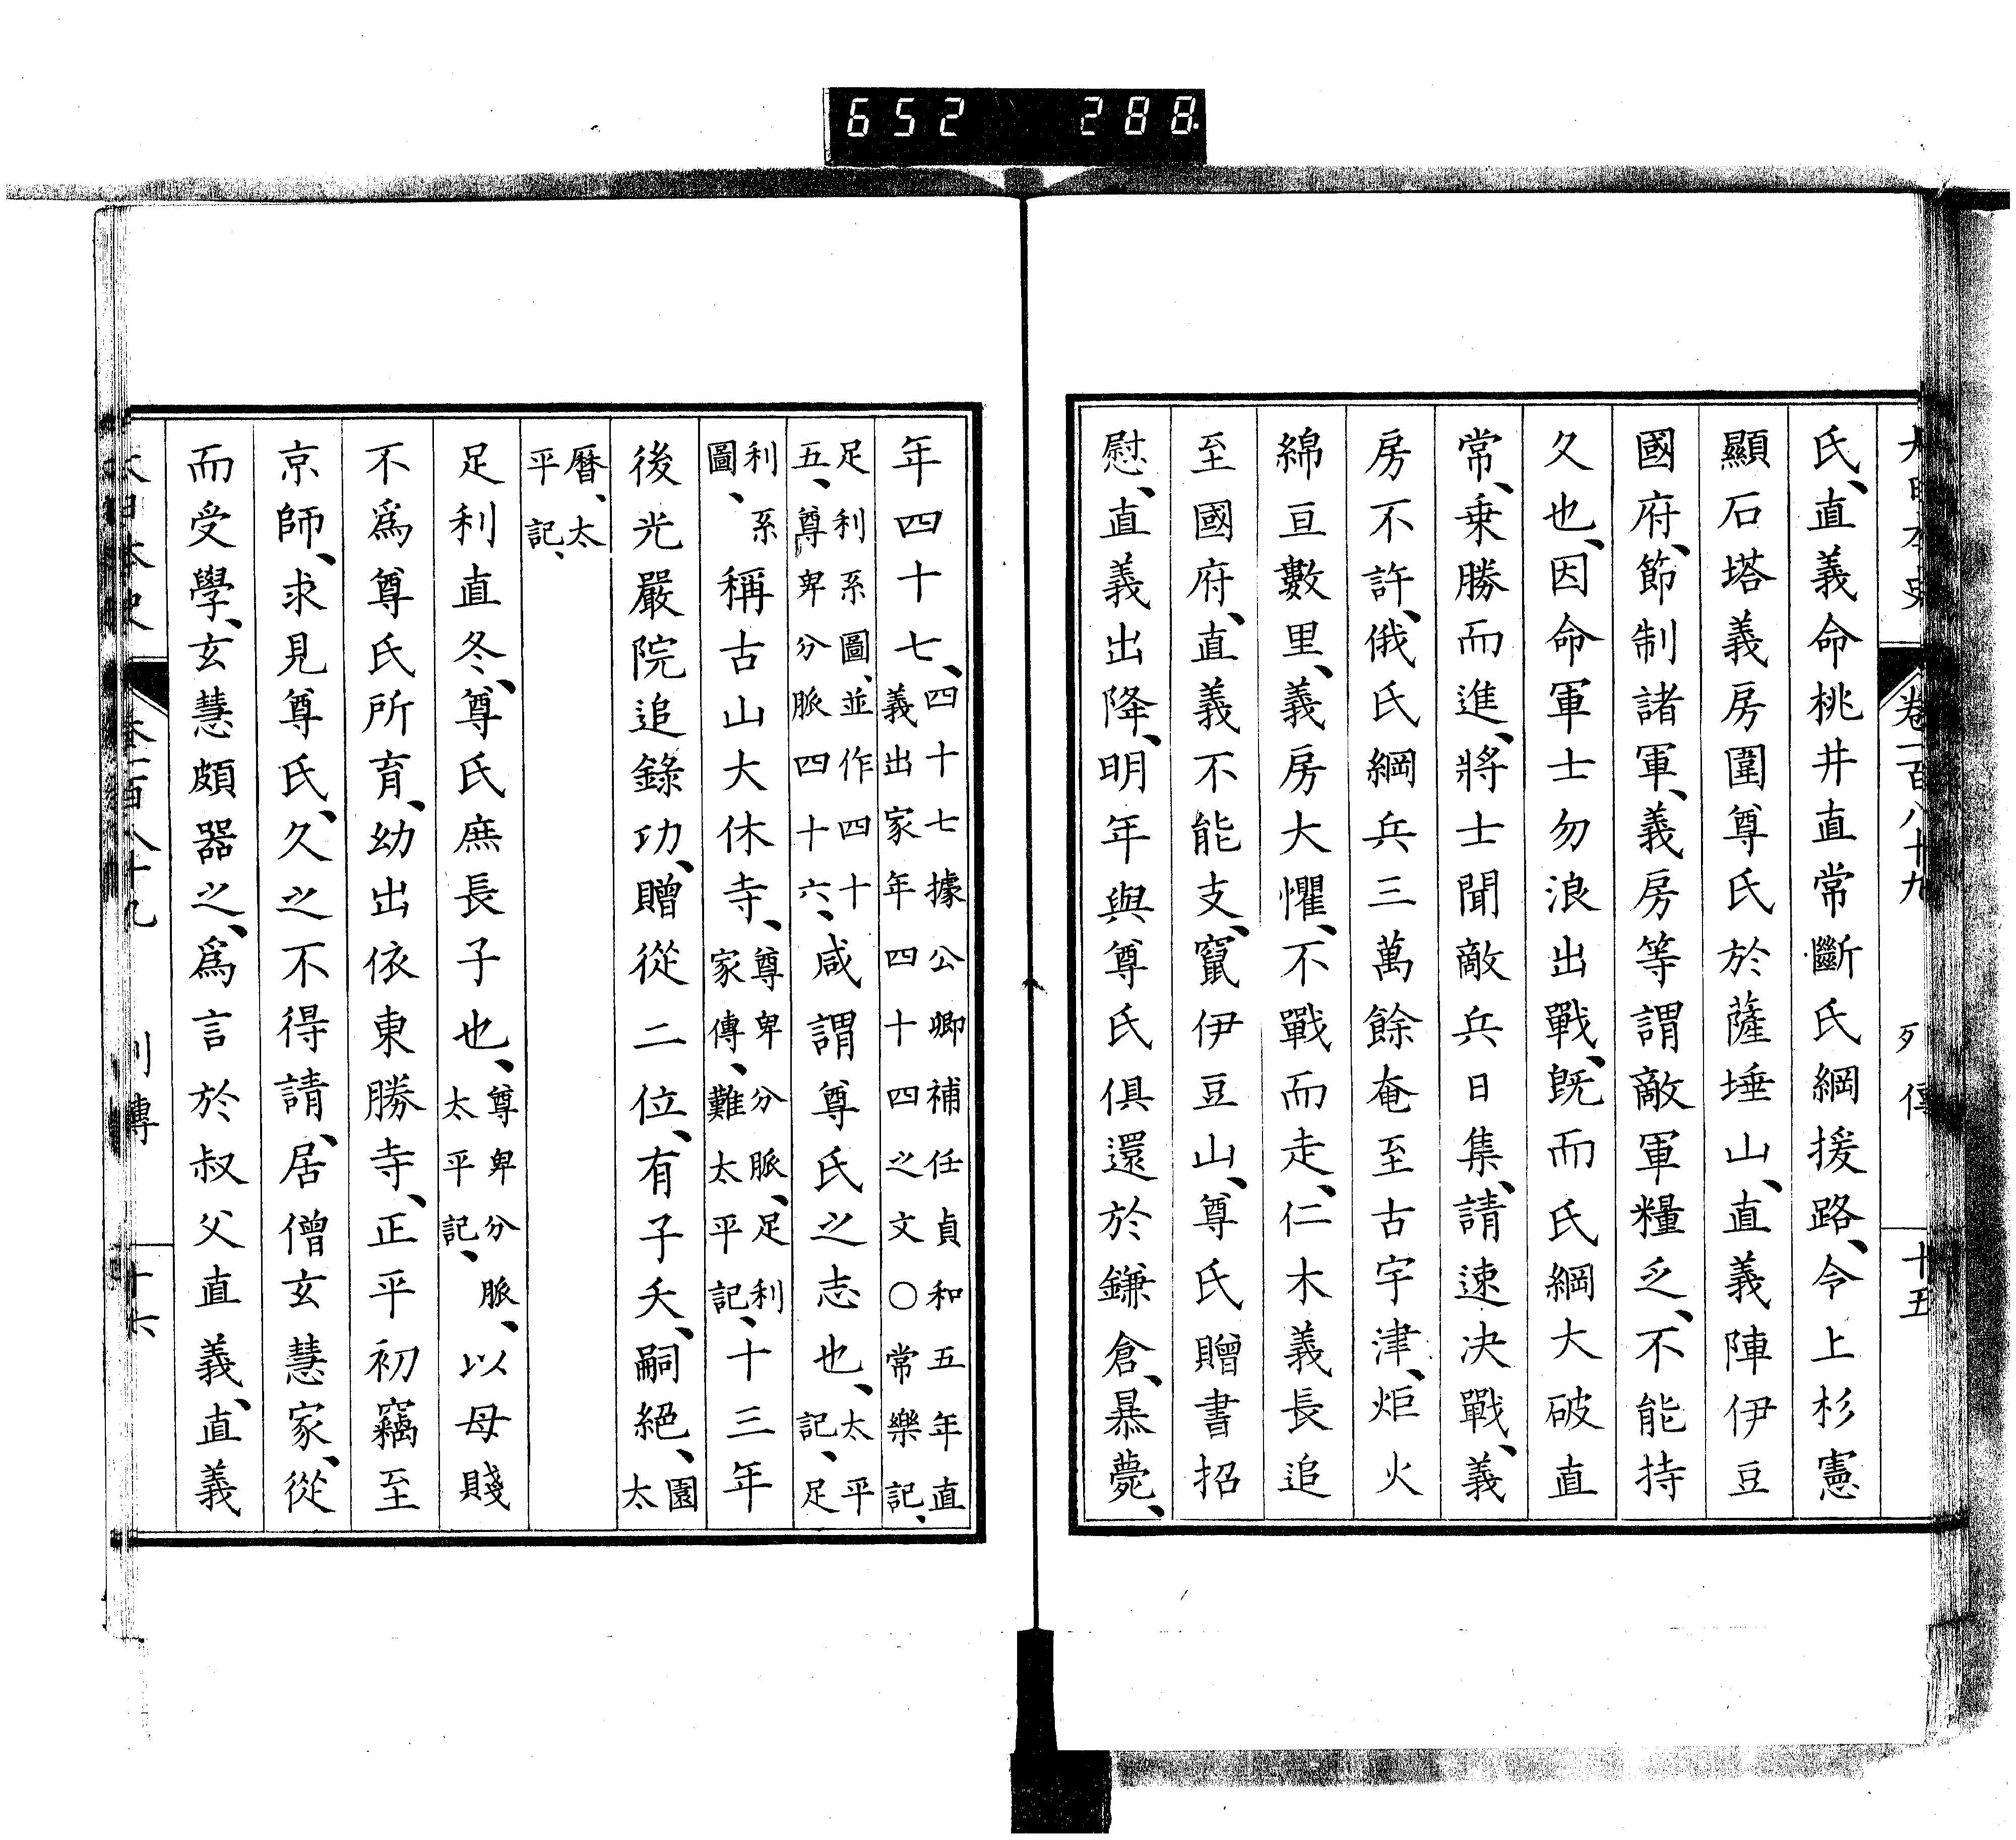 652 288
大日本史 卷一百八十九 列傳 十五
氏、直義命桃井直常斷氏綱援路、令上杉憲
顯石塔義房圍尊氏於薩埵山、直義陣伊豆
國府、節制諸軍、義房等謂敵軍糧乏、不能持
久也、因命軍士勿浪出戰、既而氏綱大破直
常、乗勝而進、將士聞敵兵日集、請速决戰、義
房不許、俄氏綱兵三萬餘奄至古宇津、炬火
綿亘數里、義房大懼、不戰而走、仁木義長追
至國府、直義不能支、竄伊豆山、尊氏贈書招
慰、直義出降、明年與尊氏俱還於鎌倉、暴薨、
年四十七、四十七據公卿補任貞和五年直
義出家年四十四之文○常樂記、
足利系圖、並作四十
五、尊卑分脈四十六、咸謂尊氏之志也、太平
記、足
利系
圖、稱古山大休寺、尊卑分脈、足利
家傳、難太平記、十三年
後光嚴院追錄功、贈從二位、有子夭、嗣絕、園
太
曆、太
平記、
足利直冬、尊氏庶長子也、尊卑分脈、
太平記、以母賤
不爲尊氏所育、幼出依東勝寺、正平初竊至
京師、求見尊氏、久之不得請、居僧玄慧家、從
而受學、玄慧頗器之、爲言於叔父直義、直義
大日本史 卷一百八十九 列傳 十六